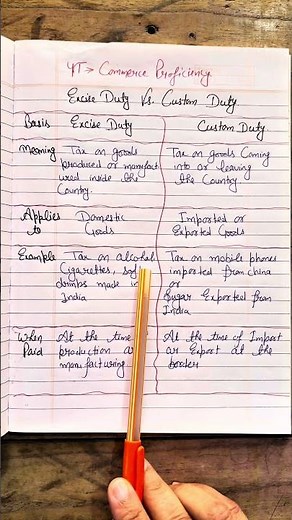 YT → Commerce Proficiency
Excise Duty Vs. Custom Duty
Basis Excise Duty Custom Duty
Meaning Tax on goods Tax on goods Coming
produced or manufact into or leaving
ured inside the the Country.
Country.
Applies Domestic Imported or
to Goods Exported Goods
Example Tax on alcohol Tax on mobile phones
Cigarettes, imported from China
drinks made in or
India Sugar Exported from
India
When At the time At the time of Import
Paid production or Export at the
manufacturing border